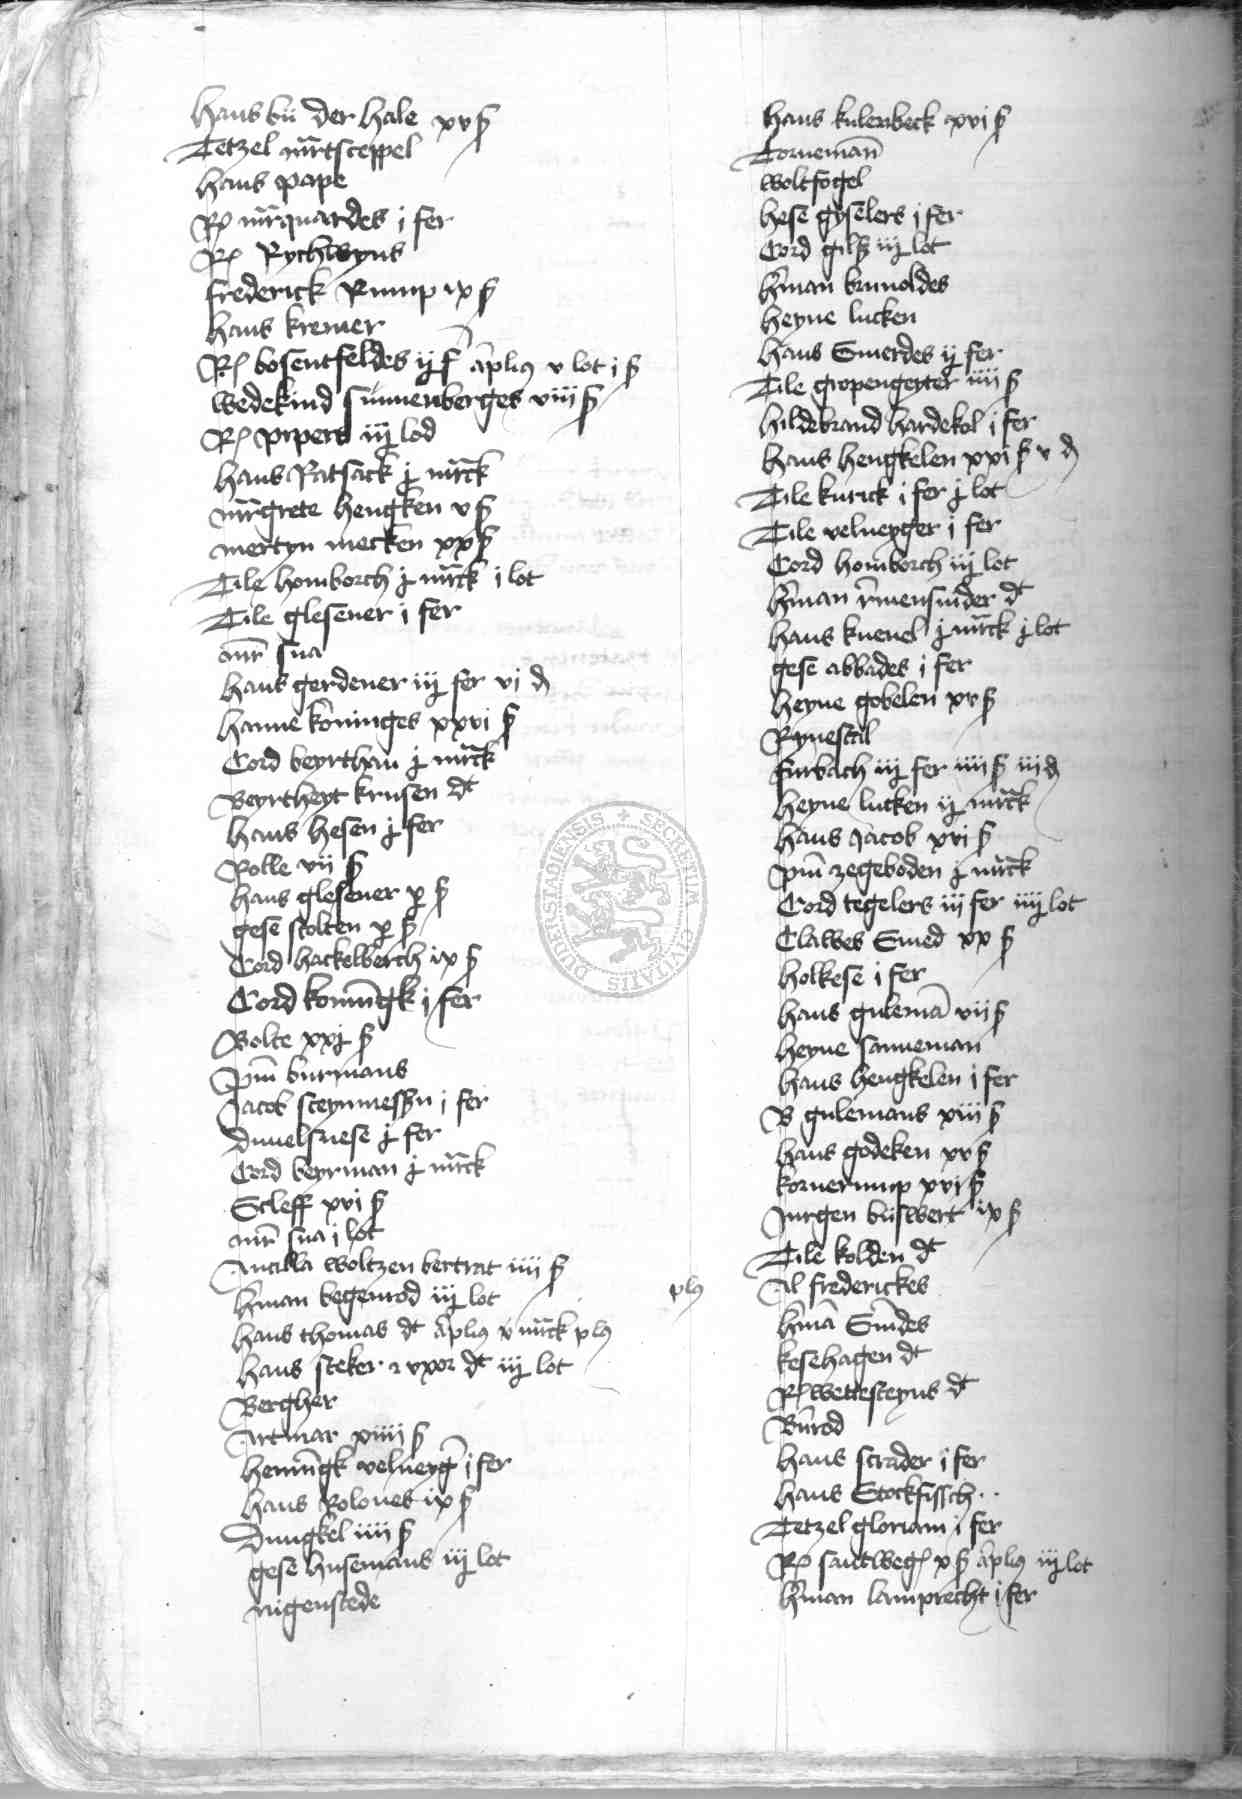 Hans bii der hale xv ß
Tetzel mrtsceppel
Hans pape
Rel mrquardes i fer
Rel Rychwyns
frederick Rump ix ß
Hans kremer
Rel bosentfeldes ij f ampliꝰ v lot i ß
wedekind sunnenberges viii ß
Rel pipers iij lod
Hans Ratsack j mrck
mrgrete hengken v ß
mertyn mecken xx ß
Tile homborch j mrck i lot
Tile glesener i fer
mr sua
Hans gerdener iij fer vi d
Hanne koninges xxvi ß
Cord beyrthan j mrck
Beyrtheyt krusen dt
Hans hesen j fer
Rolle vii ß
Hans glesener x ß
gese stolten x ß
Cord hackelberch ix ß
Cord konnigk i fer
Bolte xxj ß
pm burmans
Jacob steynmessen i fer
Duuelsuese j fer
Cord beyrman j mrck
Scleff xvi ß
mr sua i lot
Ancilla woltzen bertrat iiii ß
Hman begenrod iij lot
Hans thomas dt ampliꝰ v mrck plꝰ
Hans steker & vxor dt iij lot
Bergher
Artmar xiiii ß
Henningk velueyg i fer
Hans Roloues ix ß
Dungkel iiii ß
gese husemans iij lot
nigenstede
Hans kulenbeck xvi ß
Torneman
woltfogel
Hese gyselers i fer
Cord gilß iij lot
Hman brunoldes
Heyne lucken
Hans Smerdes ij fer
Tile gropengeyter iiii ß
Hildebrand hardekol i fer
Hans hengkelen xxi ß v d
Tile kurick i fer j lot
Tile velueyger i fer
Cord homborch iij lot
Hman rmensnider dt
Hans kneuel j mrck j lot
gese abbades i fer
Heyne gobelen xv ß
Rynesctil
furbach iij fer iiii ß iii d
Heyne lucken ij mrck
Hans Jacob xvi ß
pm zegeboden j mrck
Cord tegelers iii fer iiij lot
Clawes Smed xx ß
Holkese i fer
Hans guleman vii ß
Heyne sanneman
Hans hengkelen i fer
B gulemans xiii ß
Hans godeken xv ß
kornerump xvi ß
Jurgen buswert ix ß
Tile kolden dt
plꝰ Al frederickes
Hman Smdes
kesehagen dt
Rel wettesteyns dt
Bnrod
Hans scrader i fer
Hans Stockfissch
Tetzel gloriam i fer
Rel santweg x ß ampliꝰ iij lot
Hman lamprecht i fer
SECRETUM CIVITATIS DUDERSTADIENSIS